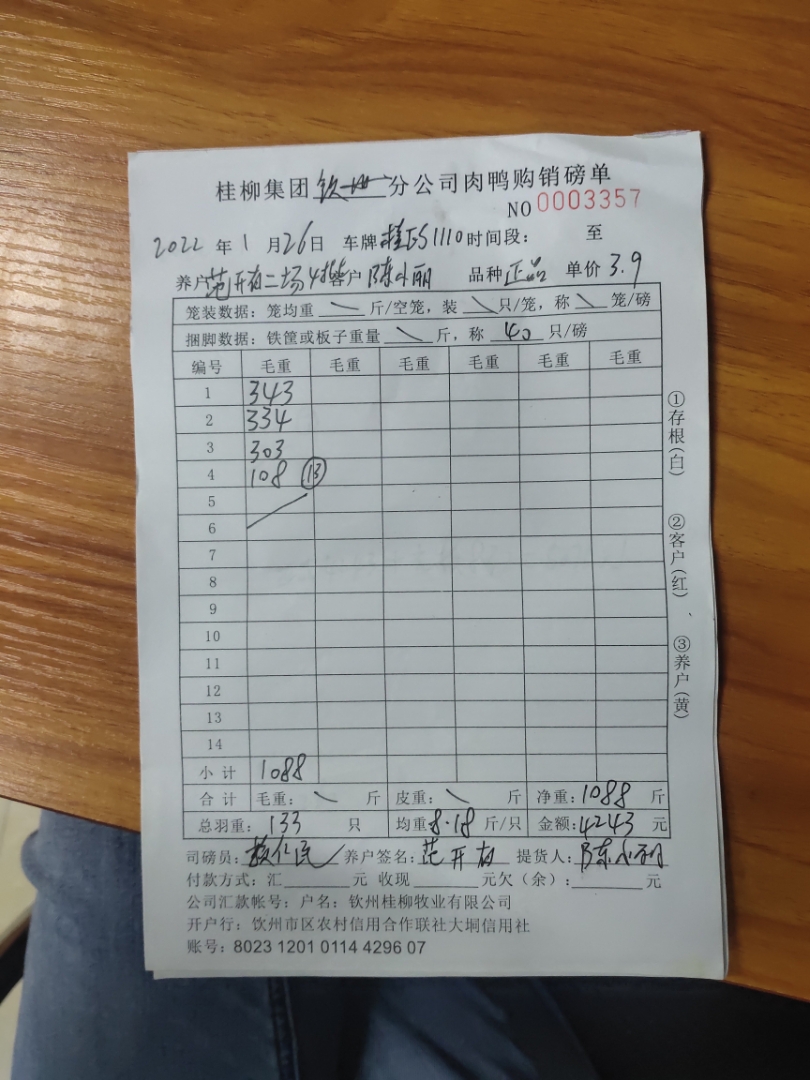 桂柳集团钦州分公司肉鸭购销磅单
NO 0003357
2022 年 1 月 26 日 车牌 1110 时间段: 至
养户 范开有二场 客户 陈小丽 品种 正品 单价 3.9
笼装数据: 笼均重 \ 斤/空笼, 装 \ 只/笼, 称 \ 笼/磅
捆脚数据: 铁筐或板子重量 \ 斤, 称 40 只/磅
编号 毛重 毛重 毛重 毛重 毛重 毛重
1 343
2 334
3 303
4 108 ⑬
5
6
7
8
9
10
11
12
13
14
小计 1088
合计 毛重: \ 斤 皮重: \ 斤 净重: 1088 斤
总羽重: 133 只 均重 8.18 斤/只 金额: 4243 元
司磅员: 养户签名: 范开有 提货人: 陈小丽
付款方式: 汇______元 收现______元欠(余): ______元
公司汇款帐号: 户名: 钦州桂柳牧业有限公司
开户行: 钦州市区农村信用合作联社大垌信用社
账号: 8023 1201 0114 4296 07
①存根(白)
②客户(红)
③养户(黄)